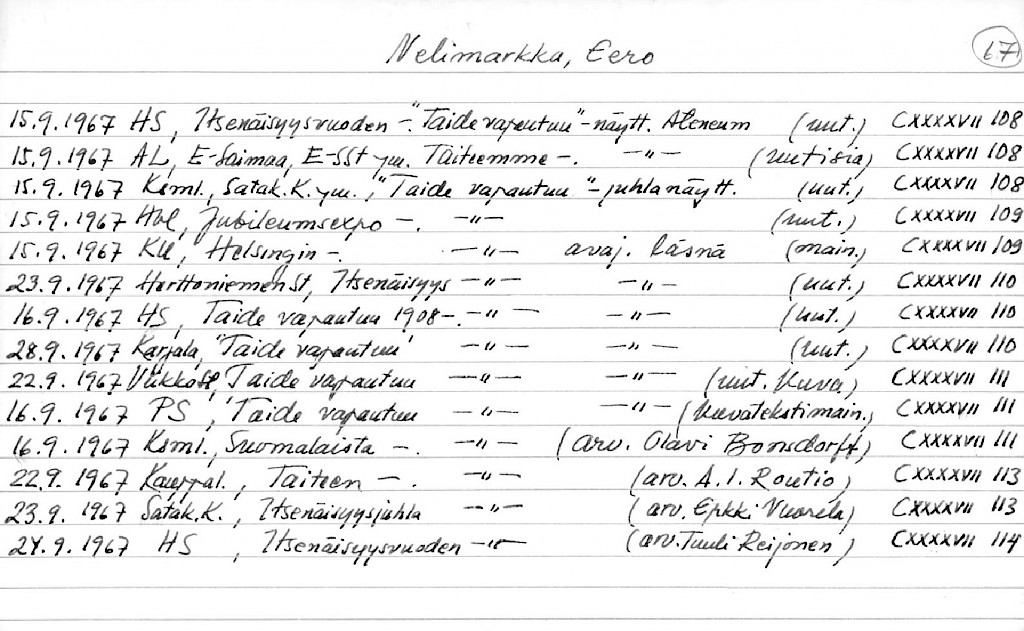 Nelimarkka, Eero
67
15.9.1967 HS, Itsenäisyysvuoden -. "Taide vapautuu"-näytt. Ateneum (uut.) CXXXXVII 108
15.9.1967 AL, E-Saimaa, E-SSt ym. Taiteemme -. -"- (uutisia) CXXXXVII 108
15.9.1967 Ksml., Satak.K. ym., "Taide vapautuu"-juhlanäytt. (uut.) CXXXXVII 108
15.9.1967 Hbl, Jubileumsexpo -. -"- (uut.) CXXXXVII 109
15.9.1967 KU, Helsingin -. -"- avaj. läsnä (main.) CXXXXVII 109
23.9.1967 Herttoniemen St, Itsenäisyys -"- -"- (uut.) CXXXXVII 110
16.9.1967 HS, Taide vapautuu 1908-. -"- -"- (uut.) CXXXXVII 110
28.9.1967 Karjala, "Taide vapautuu" -"- -"- (uut.) CXXXXVII 110
22.9.1967 Taide vapautuu -"- -"- (uut. kuva) CXXXXVII 111
16.9.1967 PS, Taide vapautuu -"- -"- (kuvatekstimain.) CXXXXVII 111
16.9.1967 Ksml., Suomalaista -. -"- (arv. Olavi Bonsdorff) CXXXXVII 111
22.9.1967 Kauppal., Taiteen -. -"- (arv. A.I. Routio) CXXXXVII 113
23.9.1967 Satak.K., Itsenäisyysjuhla -"- (arv. Erkki Vuorela) CXXXXVII 113
24.9.1967 HS, Itsenäisyysvuoden -"- (arv. Tuuli Reijonen) CXXXXVII 114